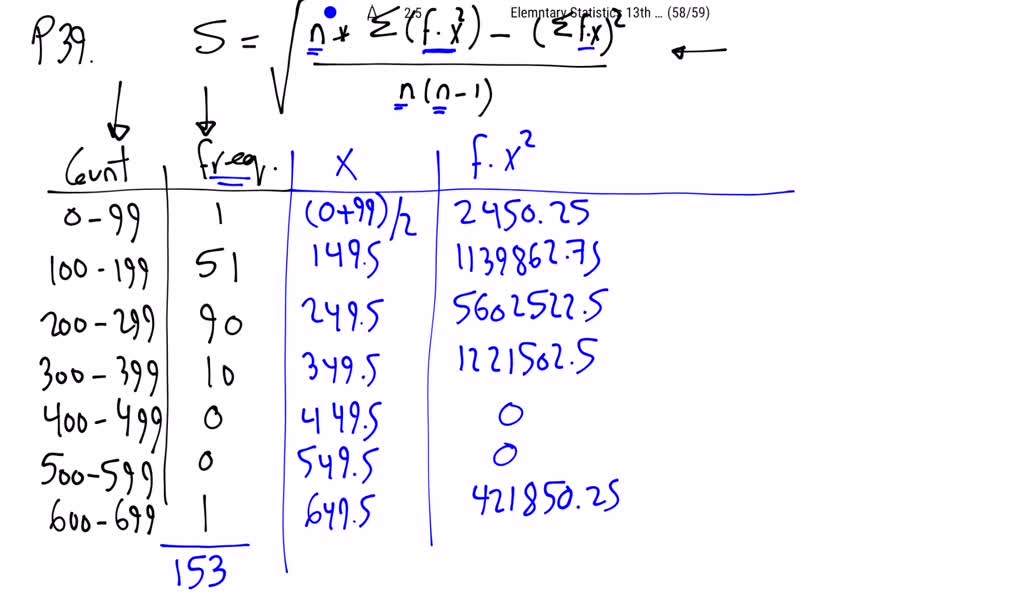 A 2.5 Elemntary Statistics 13th ... (58/59)
P39. S = √ n * Σ(f.x²) - (Σf.x)²
n(n-1)
Count freq. X f.x²
0-99 1 (0+99)/2 2450.25
100-199 51 149.5 1139862.75
200-299 90 249.5 5602522.5
300-399 10 349.5 1221502.5
400-499 0 449.5 0
500-599 0 549.5 0
600-699 1 649.5 421850.25
153